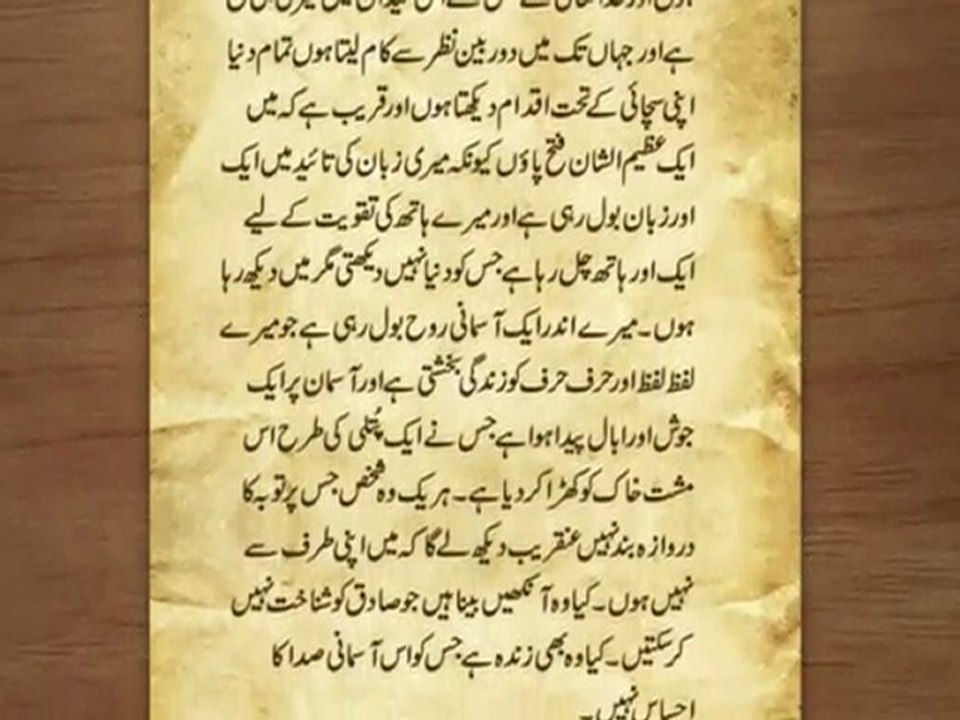 ہے اور جہاں تک میں دوربین نظر سے کام لیتا ہوں تمام دنیا
اپنی سچائی کے تحت اقدام دیکھتا ہوں اور قریب ہے کہ میں
ایک عظیم الشان فتح پاؤں کیونکہ میری زبان کی تائید میں ایک
اور زبان بول رہی ہے اور میرے ہاتھ کی تقویت کے لیے
ایک اور ہاتھ چل رہا ہے جس کو دنیا نہیں دیکھتی مگر میں دیکھ رہا
ہوں۔ میرے اندر ایک آسمانی روح بول رہی ہے جو میرے
لفظ لفظ اور حرف حرف کو زندگی بخشتی ہے اور آسمان پر ایک
جوش اور ابال پیدا ہوا ہے جس نے ایک پُتلی کی طرح اس
مشت خاک کو کھڑا کر دیا ہے۔ ہریک وہ شخص جس پر توبہ کا
دروازہ بند نہیں عنقریب دیکھ لے گا کہ میں اپنی طرف سے
نہیں ہوں۔ کیا وہ آنکھیں بینا ہیں جو صادق کو شناخت نہیں
کر سکتیں۔ کیا وہ بھی زندہ ہے جس کو اس آسمانی صدا کا
احساس نہیں۔